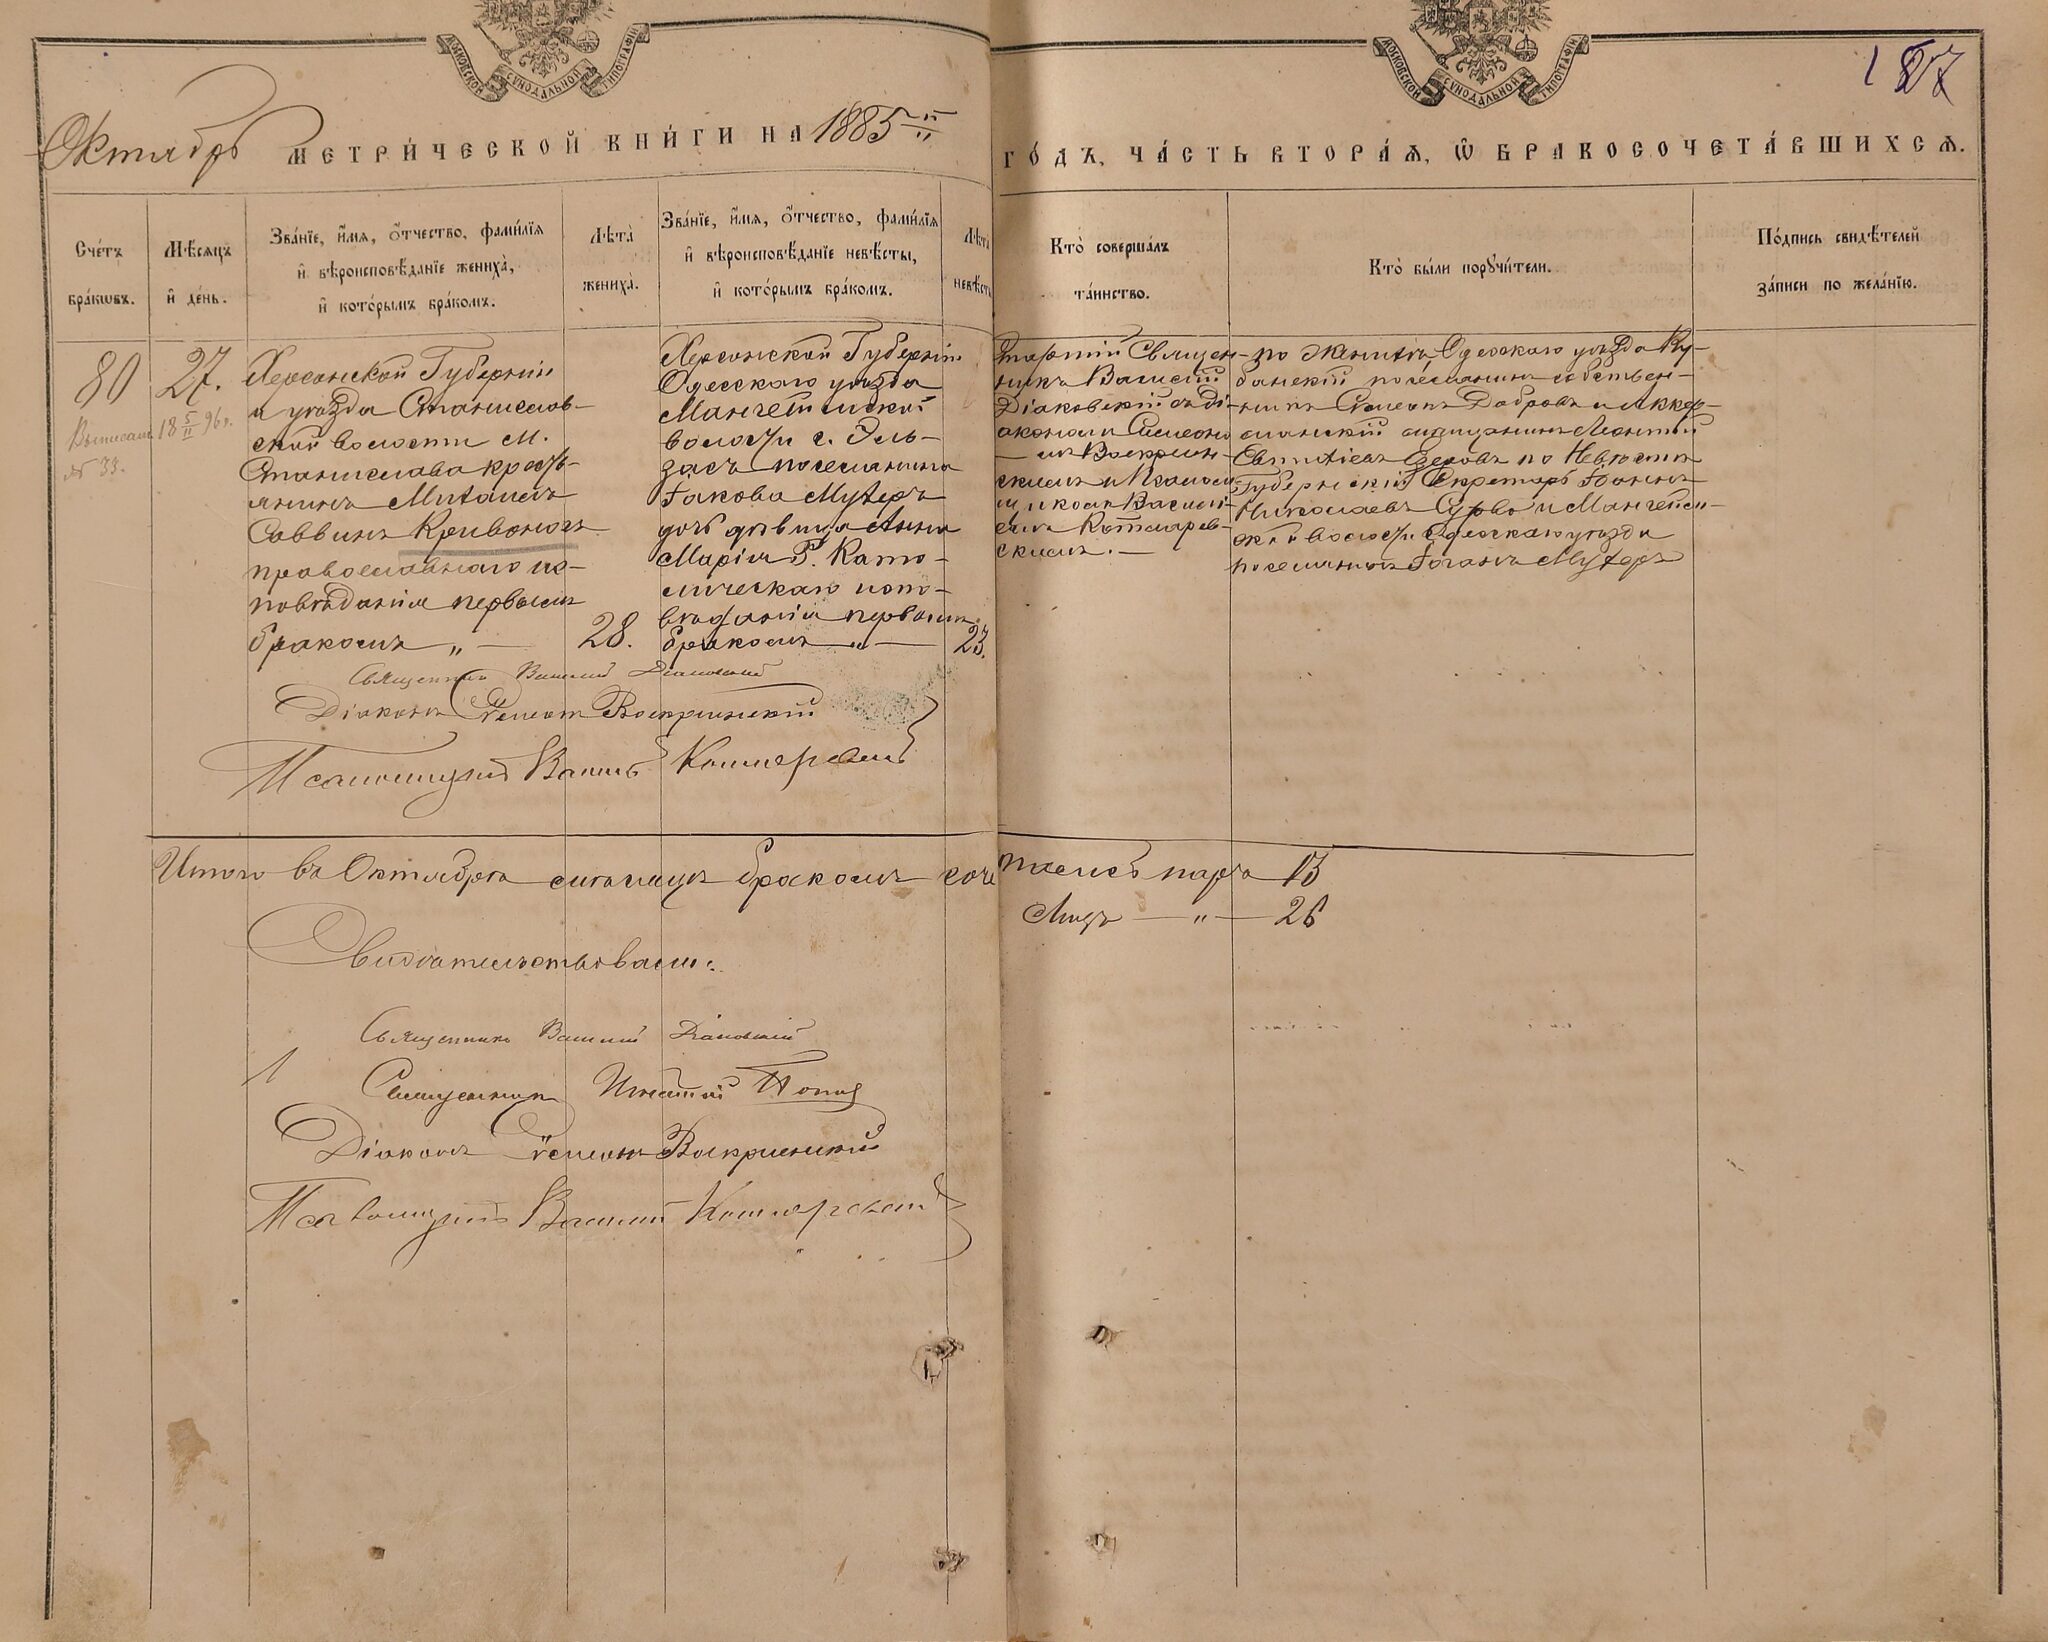 МОСКОВСКОЙ СУНОДАЛЬНОЙ ТИПОГРАФІИ
МОСКОВСКОЙ СУНОДАЛЬНОЙ ТИПОГРАФІИ
187
Октябрь МЕТРИ́ЧЕСКОЙ КНИ́ГИ НА 1885 й
ГО́ДЪ, ЧА́СТЬ ВТОРА́Я, Ѿ БРАКОСОЧЕТА́ВШИХСЯ.
Сче́тъ
бра́кѡвъ.
Мѣ́сяцъ
и҆ де́нь.
Зва́нїе, и҆́мя, ѻ҆́тчество, фами́лїя
и҆ вѣроисповѣ́данїе жениха̀,
и҆ кото́рымъ бра́комъ.
Лѣта̀
жениха̀.
Зва́нїе, и҆́мя, ѻ҆́тчество, фами́лїя
и҆ вѣроисповѣ́данїе невѣ́сты,
и҆ кото́рымъ бра́комъ.
Лѣта̀
невѣ́сты
Кто̀ соверша́лъ
та́инство.
Кто̀ бы́ли порꙋчи́тели.
По́дпись свидѣ́телей
за́писи по жела́нїю.
80
Выписан
№ 33.
27.
18 5/II 96 г.
Херсонской Губерніи
и уѣзда Станислав-
ской волости м.
Станислава кресть-
янинъ Михаилъ
Саввинъ Кривоносъ
православнаго ис-
повѣданія первымъ
бракомъ „ —
28.
Херсонской Губерніи
Одесскаго уѣзда
Мангеймской
волости с. Эль-
засъ поселянина
Іакова Мутеръ
дочь дѣвица Анна
Марія Р. Като-
лическаго испо-
вѣданія первымъ
бракомъ „ —
23.
Старшій Священ-
никъ Василій
Діаковскій съ Ді-
акономъ Симеоно
мъ Воскресен-
скимъ и Псалом
щикомъ Василі-
емъ Котляров-
скимъ. —
по женихѣ Одесскаго уѣзда Ку-
банскій поселянинъ собствен-
никъ Симеонъ Добровъ и Аккер-
манскій мѣщанинъ Леонтій
Евтихіевъ Озеровъ по Невѣстѣ
Губернскій Секретарь Іоаннъ
Николаевъ и Мангейм-
ской волости Одесскаго уѣзда
поселянинъ Іоганъ Мутеръ
Священникъ Василій Діаковскій
Діаконъ Симеонъ Воскресенскій
Псаломщикъ Васил Котляревск
Итого въ Октябрѣ мѣсяцѣ бракомъ сочетались паръ 13
Лицъ — „ — 26
Свидѣтельствовали:
Священникъ Василій Діаковскій
Священник Игнатій Попов
Діаконъ Симеонъ Воскресенскій
Псаломщикъ Василий Котляревский